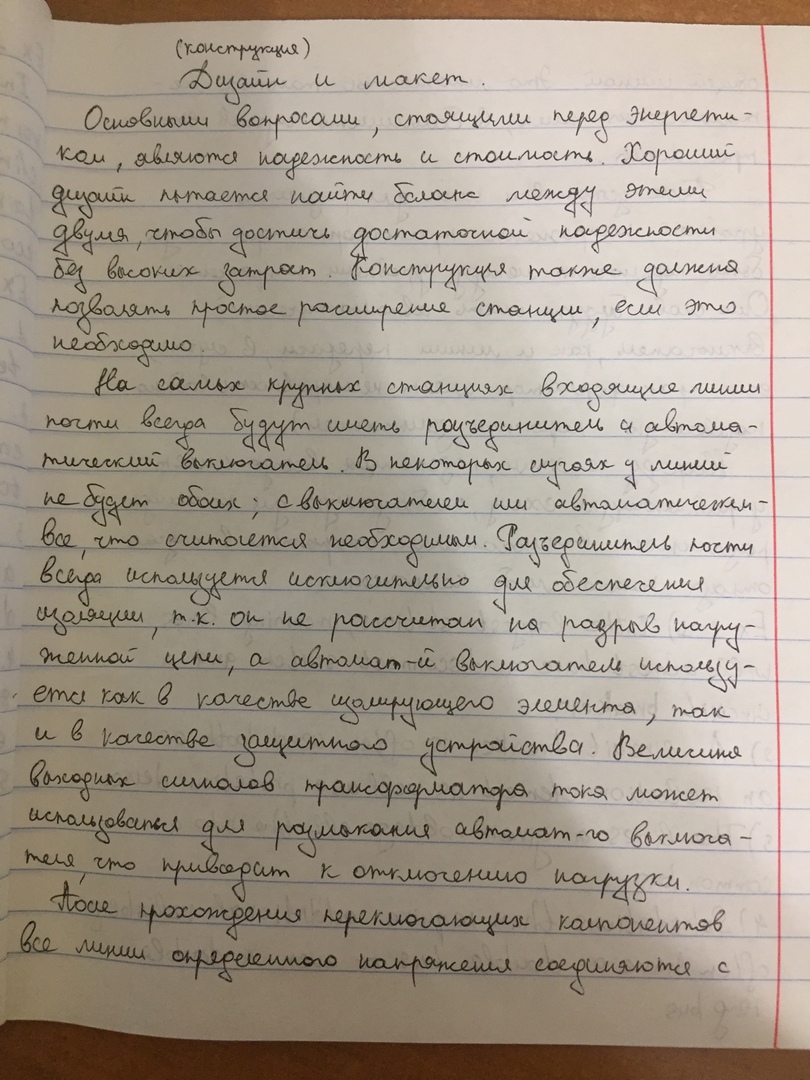 (конструкция)
Дизайн и макет.
Основными вопросами, стоящими перед энергети-
ком, являются надежность и стоимость. Хороший
дизайн пытается найти баланс между этими
двумя, чтобы достичь достаточной надежности
без высоких затрат. Конструкция также должна
позволять простое расширение станции, если это
необходимо.
На самых крупных станциях входящие линии
почти всегда будут иметь разъединитель и автома-
тический выключатель. В некоторых случаях у линий
не будет обоих; с выключателем или автоматическим-
все, что считается необходимым. Разъединитель почти
всегда используется исключительно для обеспечения
изоляции, т.к. он не рассчитан на разрыв нагру-
женной цепи, а автомат-й выключатель использу-
ется как в качестве изолирующего элемента, так
и в качестве защитного устройства. Величина
выходных сигналов трансформатора тока может
использоваться для размыкания автомат-го выключа-
теля, что приводит к отключению нагрузки.
После прохождения переключающих компонентов
все линии определенного напряжения соединяются с